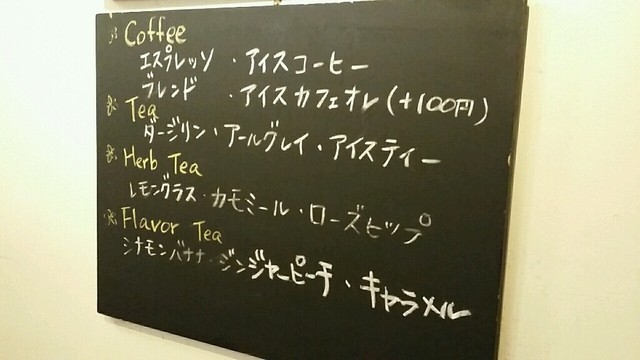 Coffee
エスプレッソ ・アイスコーヒー
ブレンド ・アイスカフェオレ(+100円)
Tea
ダージリン・アールグレイ・アイスティー
Herb Tea
レモングラス・カモミール・ローズヒップ
Flavor Tea
シナモンバナナ・ジンジャーピーチ・キャラメル